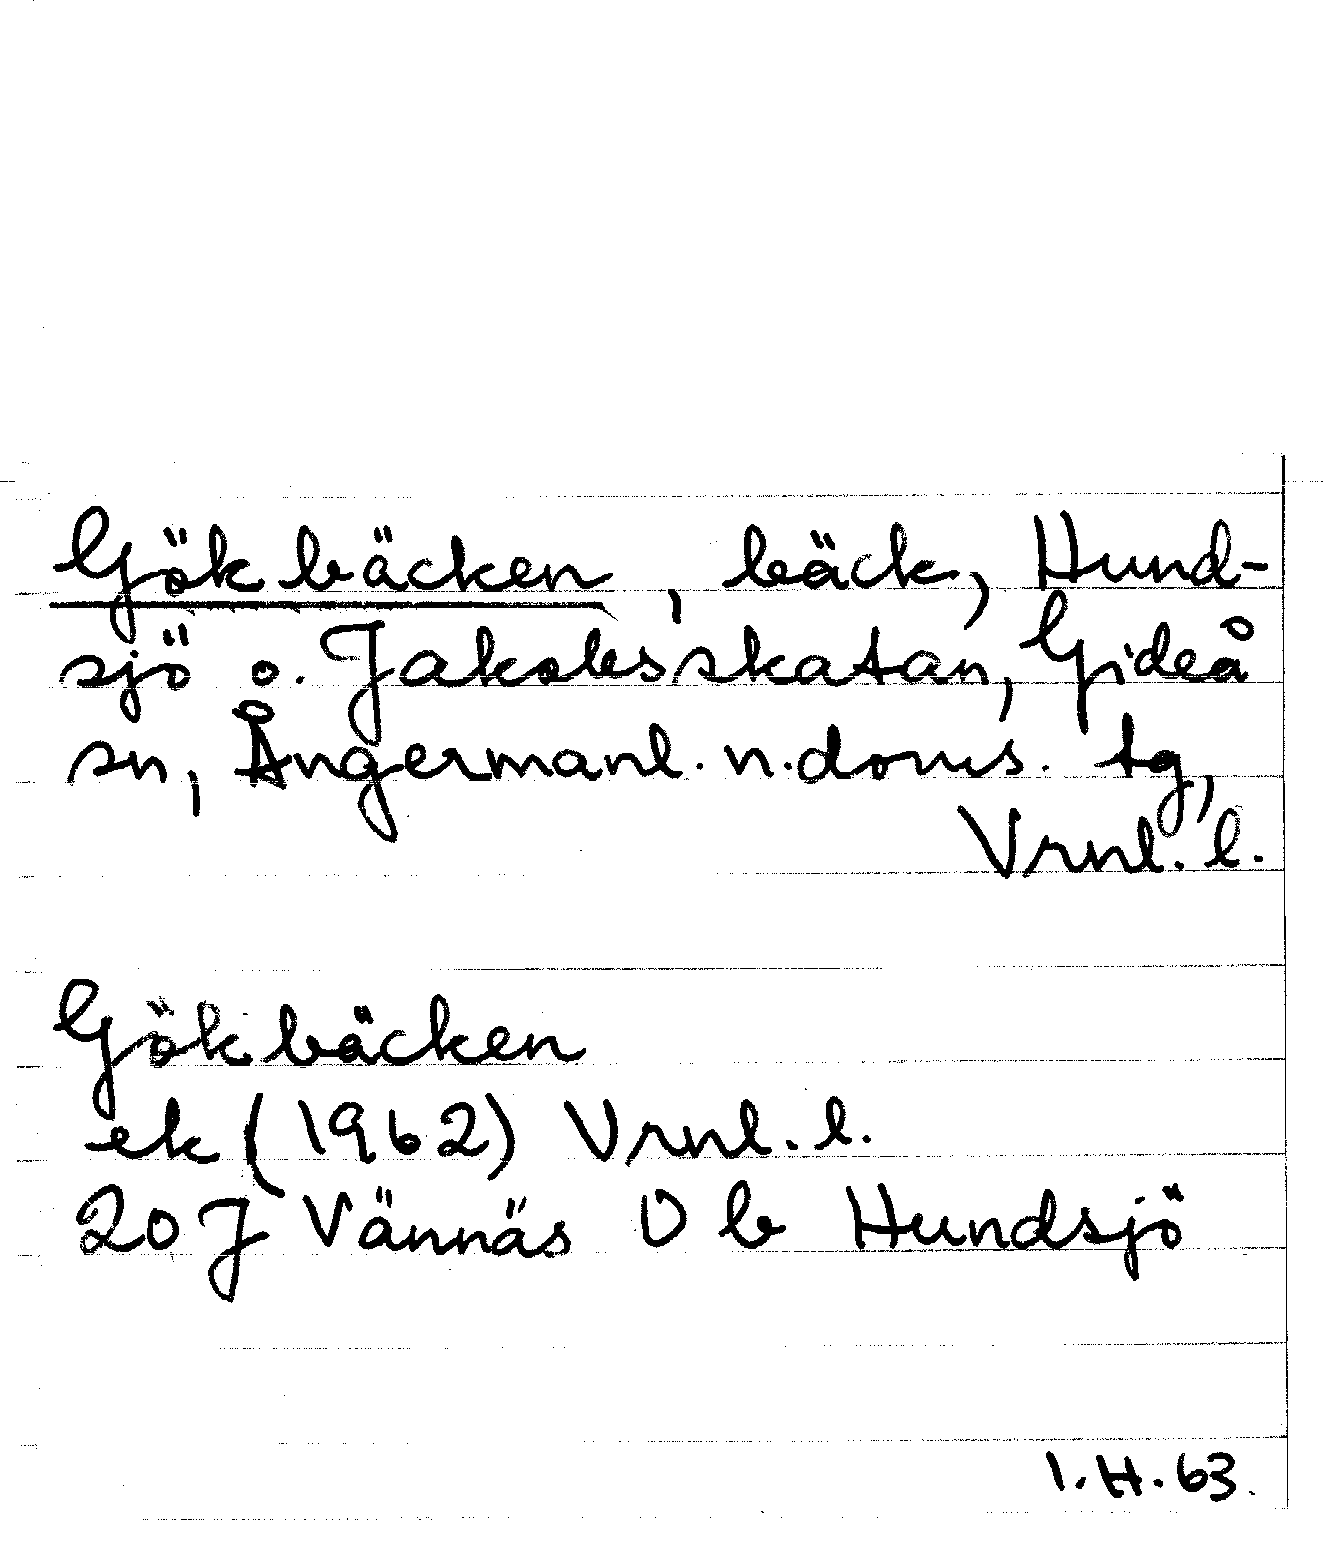 Gökbäcken, bäck, Hund-
sjö o. Jakobsskatan, Gideå
sn, Ångermanl. n. doms. tg,
Vrnl. l.
Gökbäcken
ek (1962) Vrnl. l.
20 J Vännäs O b Hundsjö
I. H. 63.